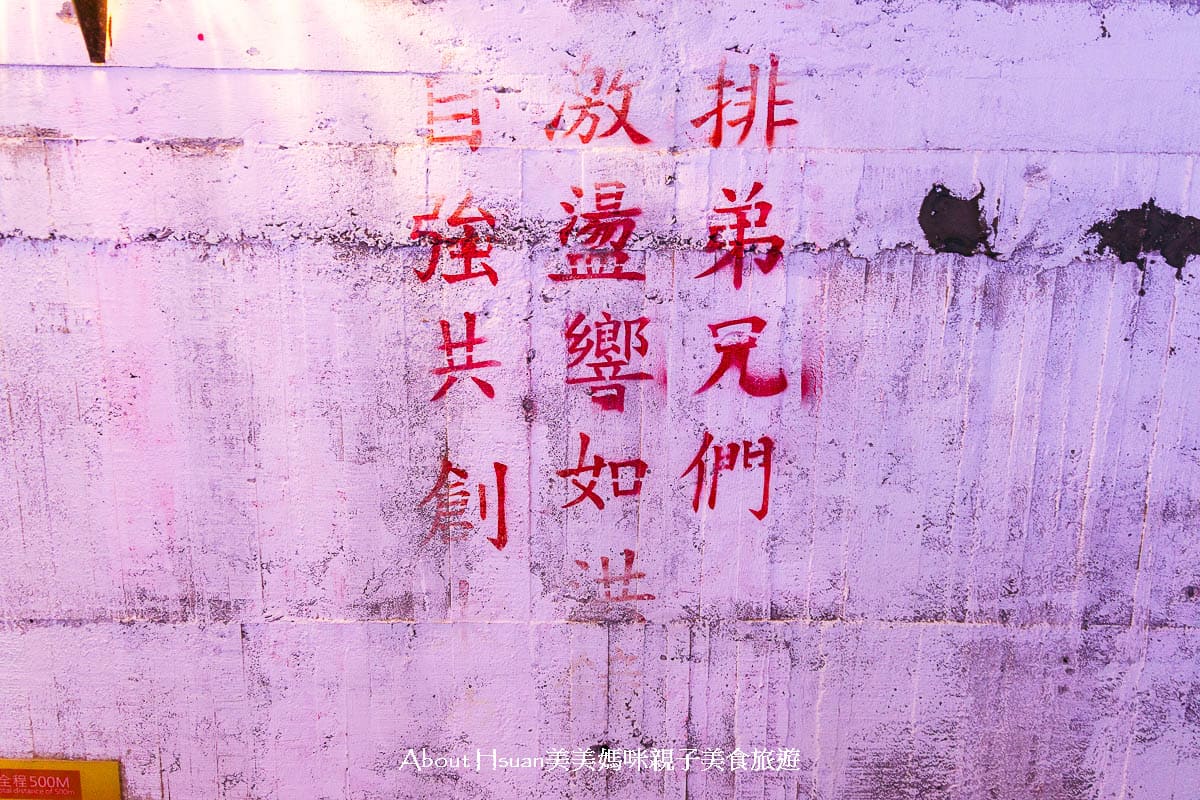 排弟兄們
激盪響如洪
自強共創
全程500M
total distance of 500m
About Hsuan美美媽咪親子美食旅遊